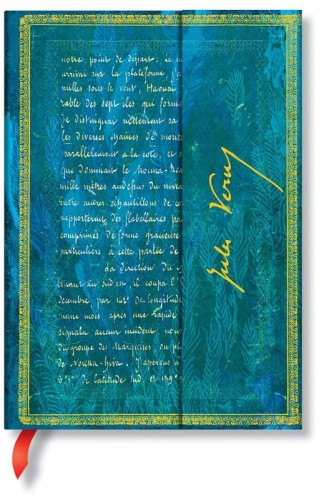 notre point de départ. Le m
arrivai sur la plateforme, j'a
milles sous le vent, Haouaï
rable des sept îles qui form
de distinguai nettement sa
les diverses chaînes de mont
parallèlement à la côte, et
que dominant le Mouna-Rea
mille mètres au-dessus du nivea
entre autres échantillons de ce
rapportèrent des flabellaires pa
comprimés de forme gracieuse
particuliers à cette partie de
La direction du
au sud-est, il coupa l'
décembre, par 142° de longitude
même mois, après une rapide
signala aucun incident, nou
du groupe des Marquises. J'
de Nouka-Hiva. J'aperçus à
de latitude sud et 139°
Jules Verne